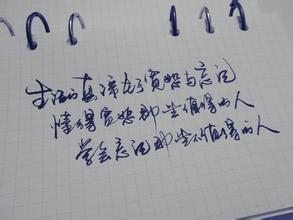 生活的真谛在于宽恕与忘记
懂得宽恕那些值得的人
学会忘记那些不值得的人